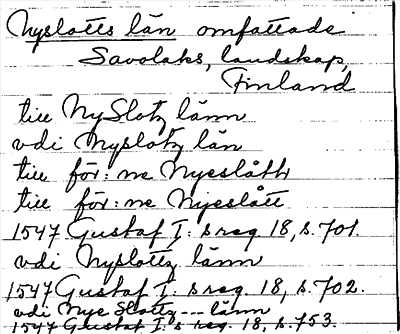 Nyslotts län omfattade
Savolaks, landskap,
Finland
till NySlotz länn
vdi Nyslotz län
till för: ne Nyeslåth
till för: ne Nyeslått
1547 Gustaf I: s reg 18, s. 701.
vdi Nyslottz länn
1547 Gustaf I. s reg 18, s. 702.
vdi Nye Slottz --- länn
1547 Gustaf I. s reg. 18, s. 753.